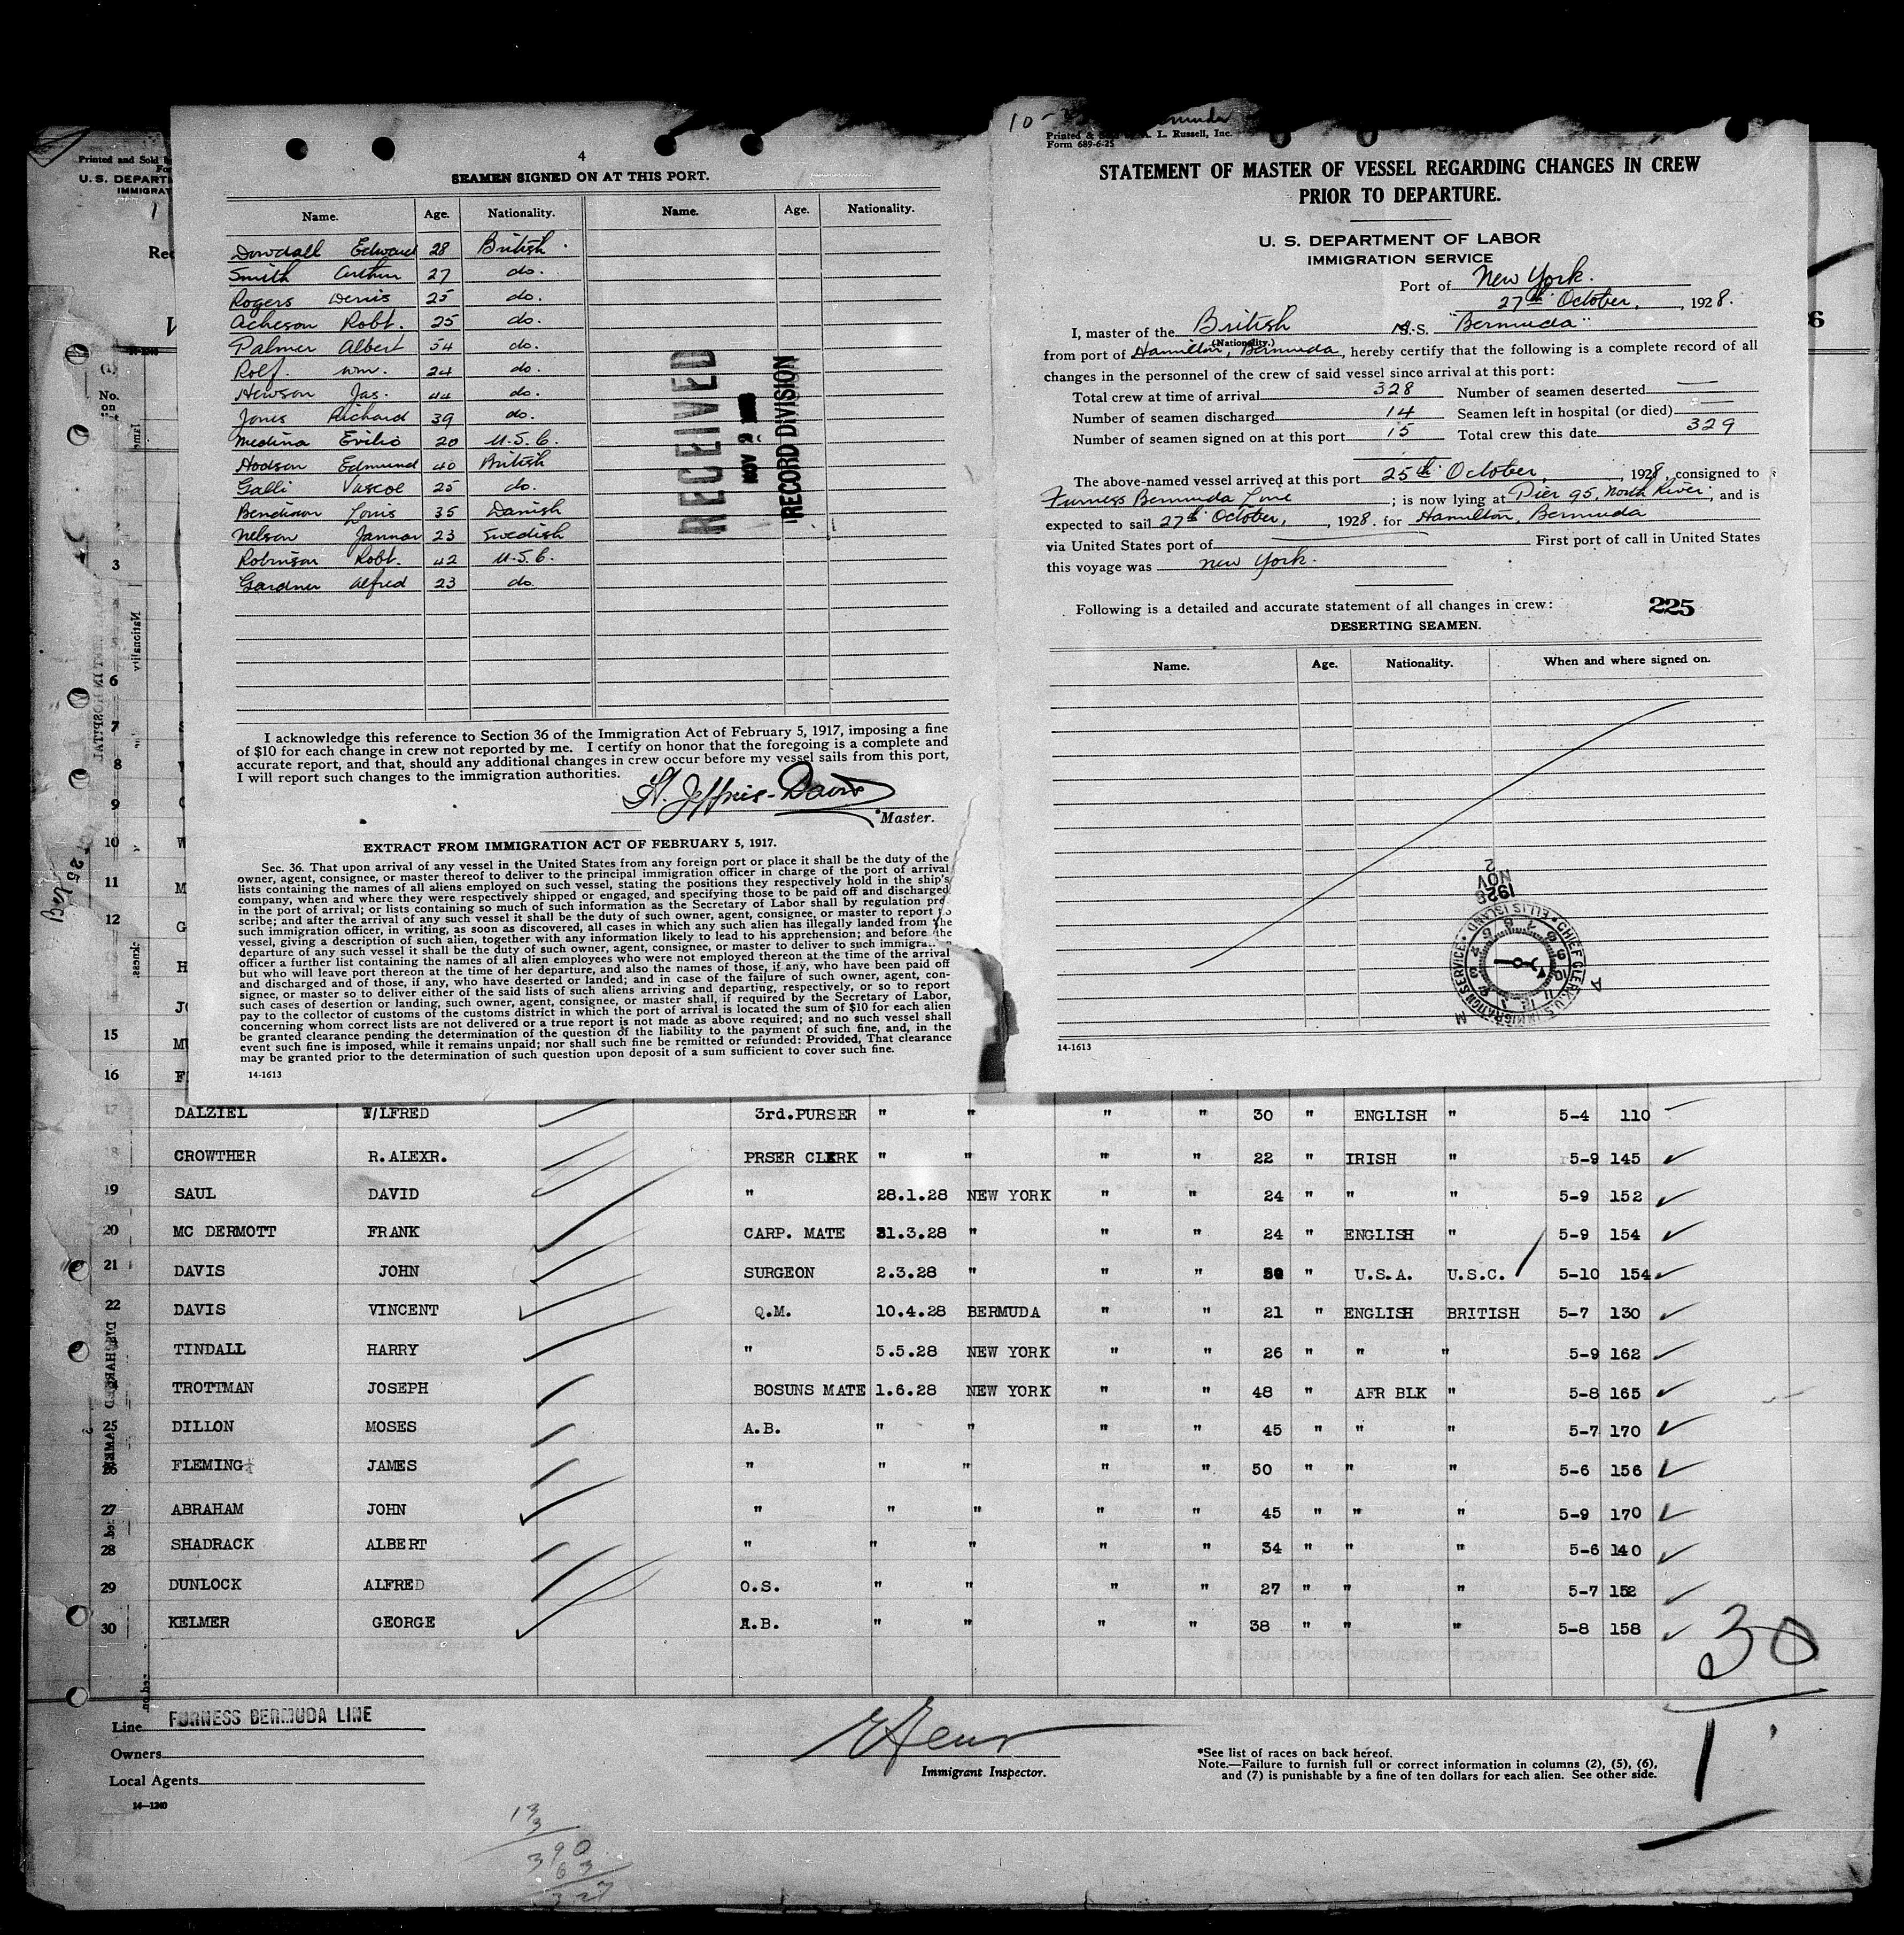 4
SEAMEN SIGNED ON AT THIS PORT.
Name. Age. Nationality. Name. Age. Nationality.
Dowdall Edward 28 British.
Smith Arthur 27 do.
Rogers Denis 25 do.
Acheson Robt. 25 do.
Palmer Albert 54 do.
Rolf. Wm. 24 do.
Hewson Jas. 44 do.
Jones Richard 39 do.
Medina Evilio 20 U.S.C.
Hodson Edmund 40 British
Galli Vascoe 25 do.
Bendixon Louis 35 Danish
Nelson 23 Swedish
Robinson Robt. 42 U.S.C.
Gardner Alfred 23 do
RECEIVED
NOV 2
RECORD DIVISION
I acknowledge this reference to Section 36 of the Immigration Act of February 5, 1917, imposing a fine
of $10 for each change in crew not reported by me. I certify on honor that the foregoing is a complete and
accurate report, and that, should any additional changes in crew occur before my vessel sails from this port,
I will report such changes to the immigration authorities.
H. Jeffries-Davis
*Master.
EXTRACT FROM IMMIGRATION ACT OF FEBRUARY 5, 1917.
Sec. 36. That upon arrival of any vessel in the United States from any foreign port or place it shall be the duty of the
owner, agent, consignee, or master thereof to deliver to the principal immigration officer in charge of the port of arrival
lists containing the names of all aliens employed on such vessel, stating the positions they respectively hold in the ship's
company, when and where they were respectively shipped or engaged, and specifying those to be paid off and discharged
in the port of arrival; or lists containing so much of such information as the Secretary of Labor shall by regulation pre
scribe; and after the arrival of any such vessel it shall be the duty of such owner, agent, consignee, or master to report to
such immigration officer, in writing, as soon as discovered, all cases in which any such alien has illegally landed from the
vessel, giving a description of such alien, together with any information likely to lead to his apprehension; and before the
departure of any such vessel it shall be the duty of such owner, agent, consignee, or master to deliver to such immigra
officer a further list containing the names of all alien employees who were not employed thereon at the time of the arrival
but who will leave port thereon at the time of her departure, and also the names of those, if any, who have been paid off
and discharged and of those, if any, who have deserted or landed; and in case of the failure of such owner, agent, con-
signee, or master so to deliver either of the said lists of such aliens arriving and departing, respectively, or so to report
such cases of desertion or landing, such owner, agent, consignee, or master shall, if required by the Secretary of Labor,
pay to the collector of customs of the customs district in which the port of arrival is located the sum of $10 for each alien
concerning whom correct lists are not delivered or a true report is not made as above required; and no such vessel shall
be granted clearance pending the determination of the question of the liability to the payment of such fine, and, in the
event such fine is imposed, while it remains unpaid; nor shall such fine be remitted or refunded: Provided, That clearance
may be granted prior to the determination of such question upon deposit of a sum sufficient to cover such fine.
14-1613
Printed & A. L. Russell, Inc.
Form 689-6-25
STATEMENT OF MASTER OF VESSEL REGARDING CHANGES IN CREW
PRIOR TO DEPARTURE.
U. S. DEPARTMENT OF LABOR
IMMIGRATION SERVICE
Port of New York.
27th October, 1928.
I, master of the British M.S. "Bermuda"
(Nationality.)
from port of Hamilton, Bermuda, hereby certify that the following is a complete record of all
changes in the personnel of the crew of said vessel since arrival at this port:
Total crew at time of arrival 328 Number of seamen deserted
Number of seamen discharged 14 Seamen left in hospital (or died)
Number of seamen signed on at this port 15 Total crew this date 329
The above-named vessel arrived at this port 25th October, 1928, consigned to
Furness Bermuda Line; is now lying at Pier 95, North River, and is
expected to sail 27th October, 1928. for Hamilton, Bermuda
via United States port of First port of call in United States
this voyage was New York.
Following is a detailed and accurate statement of all changes in crew: 225
DESERTING SEAMEN.
Name. Age. Nationality. When and where signed on.
1928
NOV
2
CHIEF CLERK, U.S. IMMIGRATION SERVICE • ELLIS ISLAND •
14-1613
Printed and Sold
U. S. DEPART
IMMIGRAT
No.
on
3
6
7
8
9
10
11 M
12 G
H
14 JO
15
16 F
17 DALZIEL W/LFRED 3rd.PURSER " " " " 30 " ENGLISH " 5-4 110
18 CROWTHER R.ALEXR. PRSER CLERK " " " " 22 " IRISH " 5-9 145
19 SAUL DAVID " 28.1.28 NEW YORK " " 24 " " " 5-9 152
20 MC DERMOTT FRANK CARP. MATE 31.3.28 " " " 24 " ENGLISH " 5-9 154
21 DAVIS JOHN SURGEON 2.3.28 " " " " U.S.A. U.S.C. 5-10 154
22 DAVIS VINCENT Q.M. 10.4.28 BERMUDA " " 21 " ENGLISH BRITISH 5-7 130
TINDALL HARRY " 5.5.28 NEW YORK " " 26 " " " 5-9 162
TROTTMAN JOSEPH BOSUNS MATE 1.6.28 NEW YORK " " 48 " AFR BLK " 5-8 165
25 DILLON MOSES A.B. " " " " 45 " " " 5-7 170
26 FLEMING JAMES " " " " " 50 " " " 5-6 156
27 ABRAHAM JOHN " " " " " 45 " " " 5-9 170
28 SHADRACK ALBERT " " " " " 34 " " " 5-6 140
29 DUNLOCK ALFRED O.S. " " " " 27 " " " 5-7 152
30 KELMER GEORGE A.B. " " " " 38 " " " 5-8 158
30
1
Line FURNESS BERMUDA LINE
Owners
Local Agents
14—1240
Immigrant Inspector.
*See list of races on back hereof.
Note.—Failure to furnish full or correct information in columns (2), (5), (6),
and (7) is punishable by a fine of ten dollars for each alien. See other side.
13
3
390
63
327